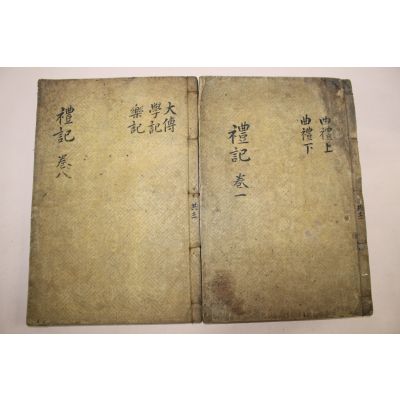 曲禮上
曲禮下
禮記 卷一
大傳
學記
樂記
禮記 卷八